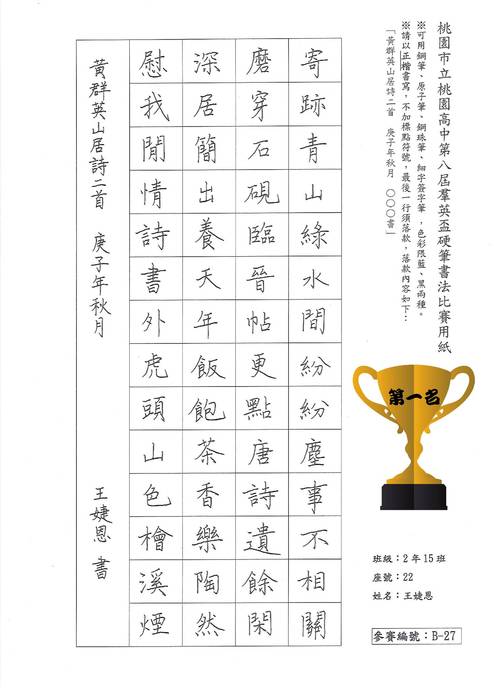 桃園市立桃園高中第八屆羣英盃硬筆書法比賽用紙
※可用鋼筆、原子筆、鋼珠筆、細字簽字筆，色彩限藍、黑兩種。
※請以正楷書寫，不加標點符號，最後一行須落款，落款內容如下：
「黃群英山居詩二首 庚子年秋月 ○○○書」
第一名
班級：2年15班
座號：22
姓名：王婕恩
參賽編號：B-27
寄跡青山綠水間紛紛塵事不相關
磨穿石硯臨晉帖更點唐詩遣餘閑
深居簡出養天年飯飽茶香樂陶然
慰我閒情詩書外虎頭山色檜溪煙
黃群英山居詩二首 庚子年秋月 王婕恩 書